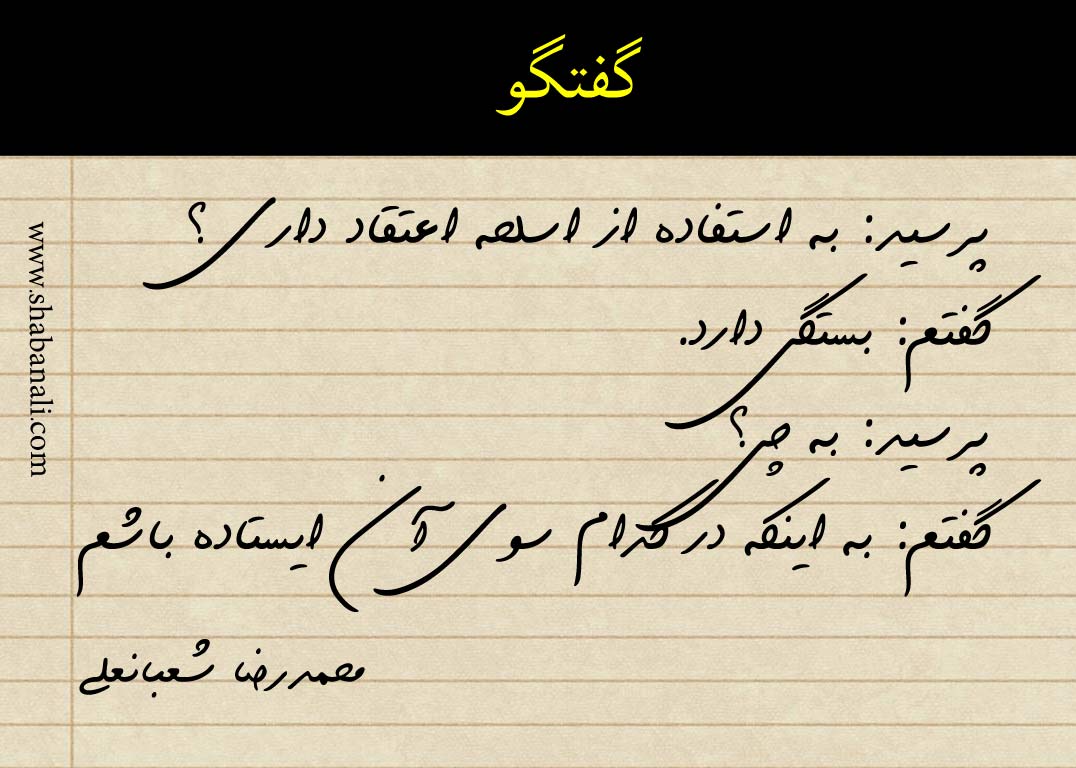 گفتگو
پرسید: به استفاده از اسلحه اعتقاد داری؟
گفتم: بستگی دارد.
پرسید: به چی؟
گفتم: به اینکه در کدام سوی آن ایستاده باشم
محمدرضا شعبانعلی
www.shabanali.com